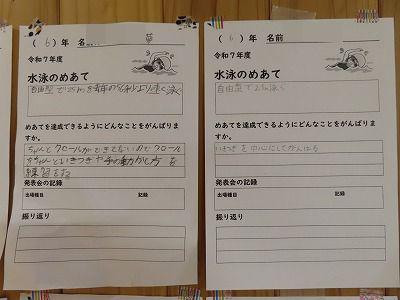 (6)年 名
令和7年度
水泳のめあて
自由型で25mを去年の
より速く泳ぐ
めあてを達成できるようにどんなことをがんばりますか。
ちゃんとクロールができてないのでクロール
ちゃんといきつぎや手の動かし方を
練習をする
発表会の記録
出場種目 記録
振り返り
(6)年 名前
令和7年度
水泳のめあて
自由型で25m泳ぐ
めあてを達成できるようにどんなことをがんばりますか。
いきつぎを中心にしてがんばる
発表会の記録
出場種目 記録
振り返り